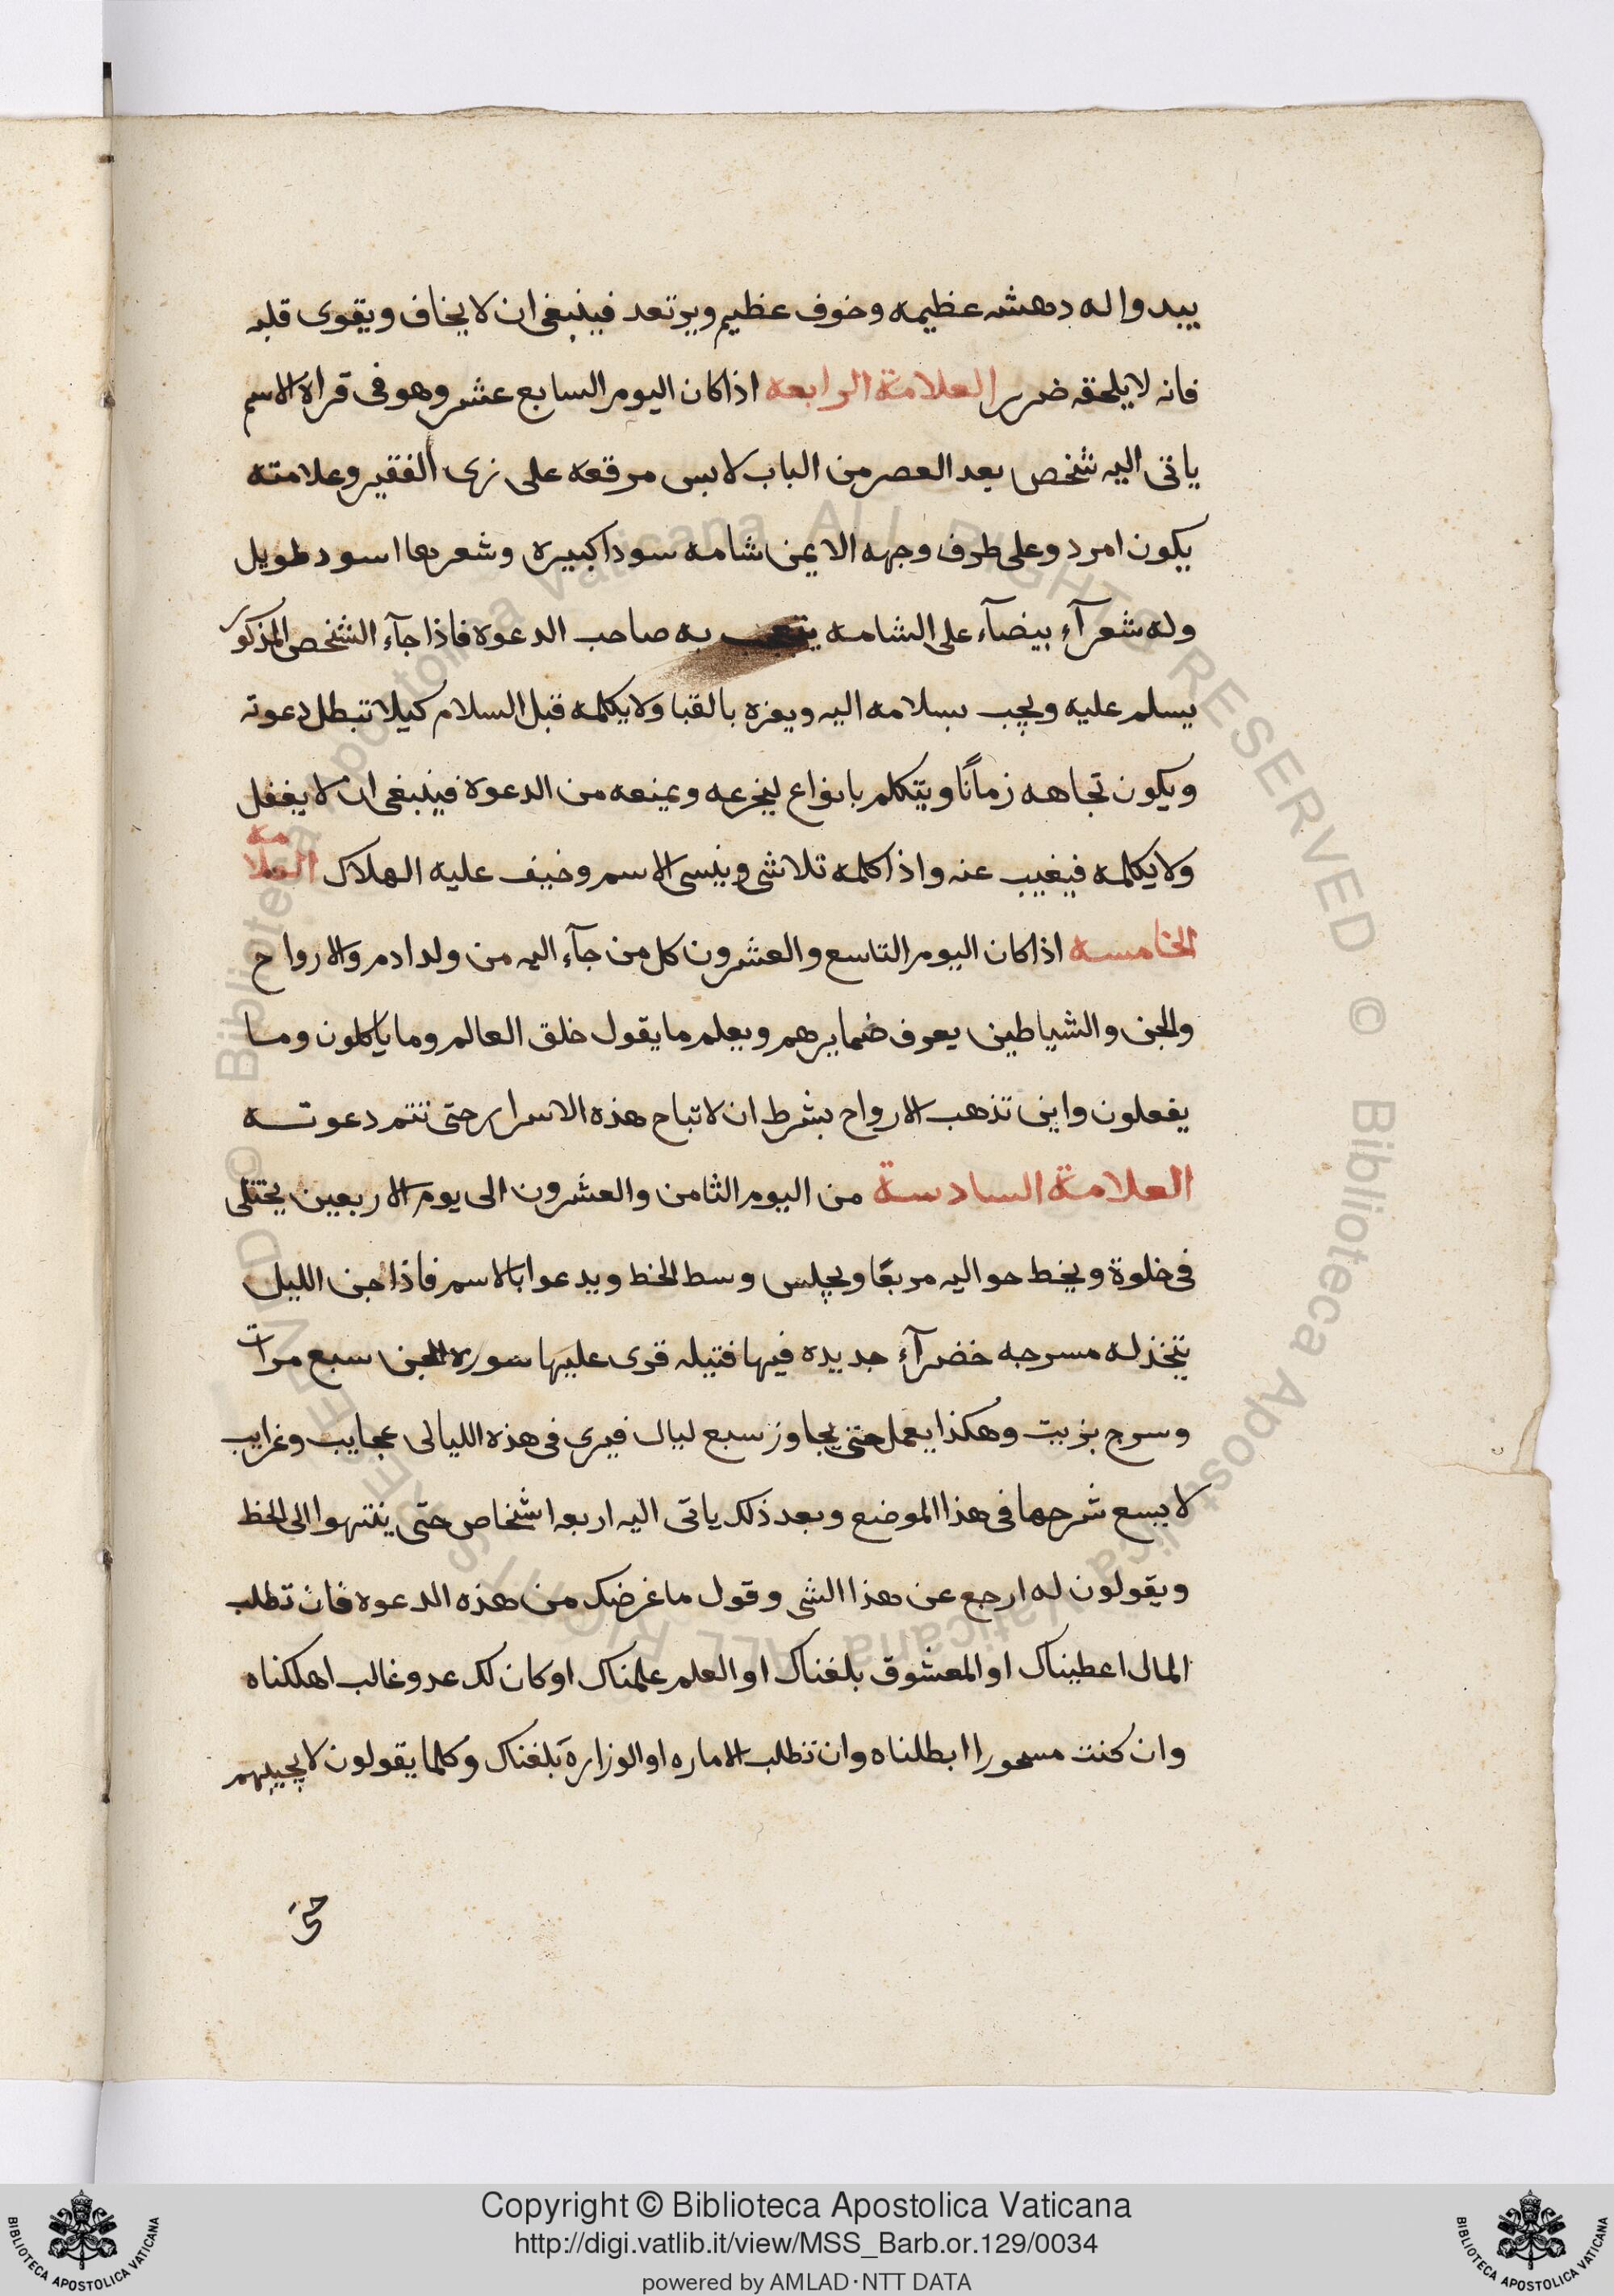 يبدوا له دهشه عظيمه وخوف عظيم ويرتعد فينبغى ان لا يخاف ويقوى قلبه
فانه لا يلحقه ضرر العلامة الرابعه اذا كان اليوم السابع عشر وهو فى قراة الاسم
ياتى اليه شخص بعد العصر من الباب لابس مرقعه على زى الفقير وعلامته
يكون امرد وعلى طرف وجهه الايمن شامه سودا كبيره وشعرها اسود طويل
وله شعرآء بيضآء على الشامه يتعجب به صاحب الدعوة فاذا جآء الشخص المذكور
يسلم عليه ويجب بسلامه اليه ويعزه بالقبا ولا يكلمه قبل السلام كيلا تبطل دعوته
ويكون تجاهه زمانًا ويتكلم بانواع ليخرعه ويمنعه من الدعوة فينبغى ان لا يغفل
ولا يكلمه فيغيب عنه واذا كلمه تلاشى وينسى الاسم وخيف عليه الهلاك العلامه
الخامسه اذا كان اليوم التاسع والعشرون كل من جآء اليه من ولد ادم والارواح
والجن والشياطين يعرف ضمايرهم ويعلم ما يقول خلق العالم وما ياكلون وما
يفعلون واين تذهب الارواح بشرط ان لا تباح هذه الاسرار حتى تتم دعوته
العلامة السادسة من اليوم الثامن والعشرون الى يوم الاربعين يختلى
فى خلوة ويخط حواليه مربعًا ويجلس وسط الخط ويدعوا بالاسم فاذا جن الليل
يتخذ له مسرجه خضرآء جديده فيها فتيله قرى عليها سورة الجن سبع مرات
وسرج بزيت وهكذا يعمل حتى يجاوز سبع ليال فيرى فى هذه الليالى عجايب وغرايب
لا يسع شرحها فى هذا الموضع وبعد ذلك ياتى اليه اربعه اشخاص حتى ينتهوا الى الخط
ويقولون له ارجع عن هذا الشى وقول ما غرضك من هذه الدعوة فان تطلب
المال اعطيناك او المعشوق بلغناك او العلم علمناك او كان لك عدو غالب اهلكناه
وان كنت مسحورا ابطلناه وان تطلب الاماره او الوزارة بلغناك وكلما يقولون لا يجيبهم
حتى
Copyright © Biblioteca Apostolica Vaticana
http://digi.vatlib.it/view/MSS_Barb.or.129/0034
powered by AMLAD·NTT DATA
BIBLIOTECA APOSTOLICA VATICANA
BIBLIOTECA APOSTOLICA VATICANA
© Biblioteca Apostolica Vaticana ALL RIGHTS RESERVED © Biblioteca Apostolica Vaticana ALL RIGHTS RESERVED